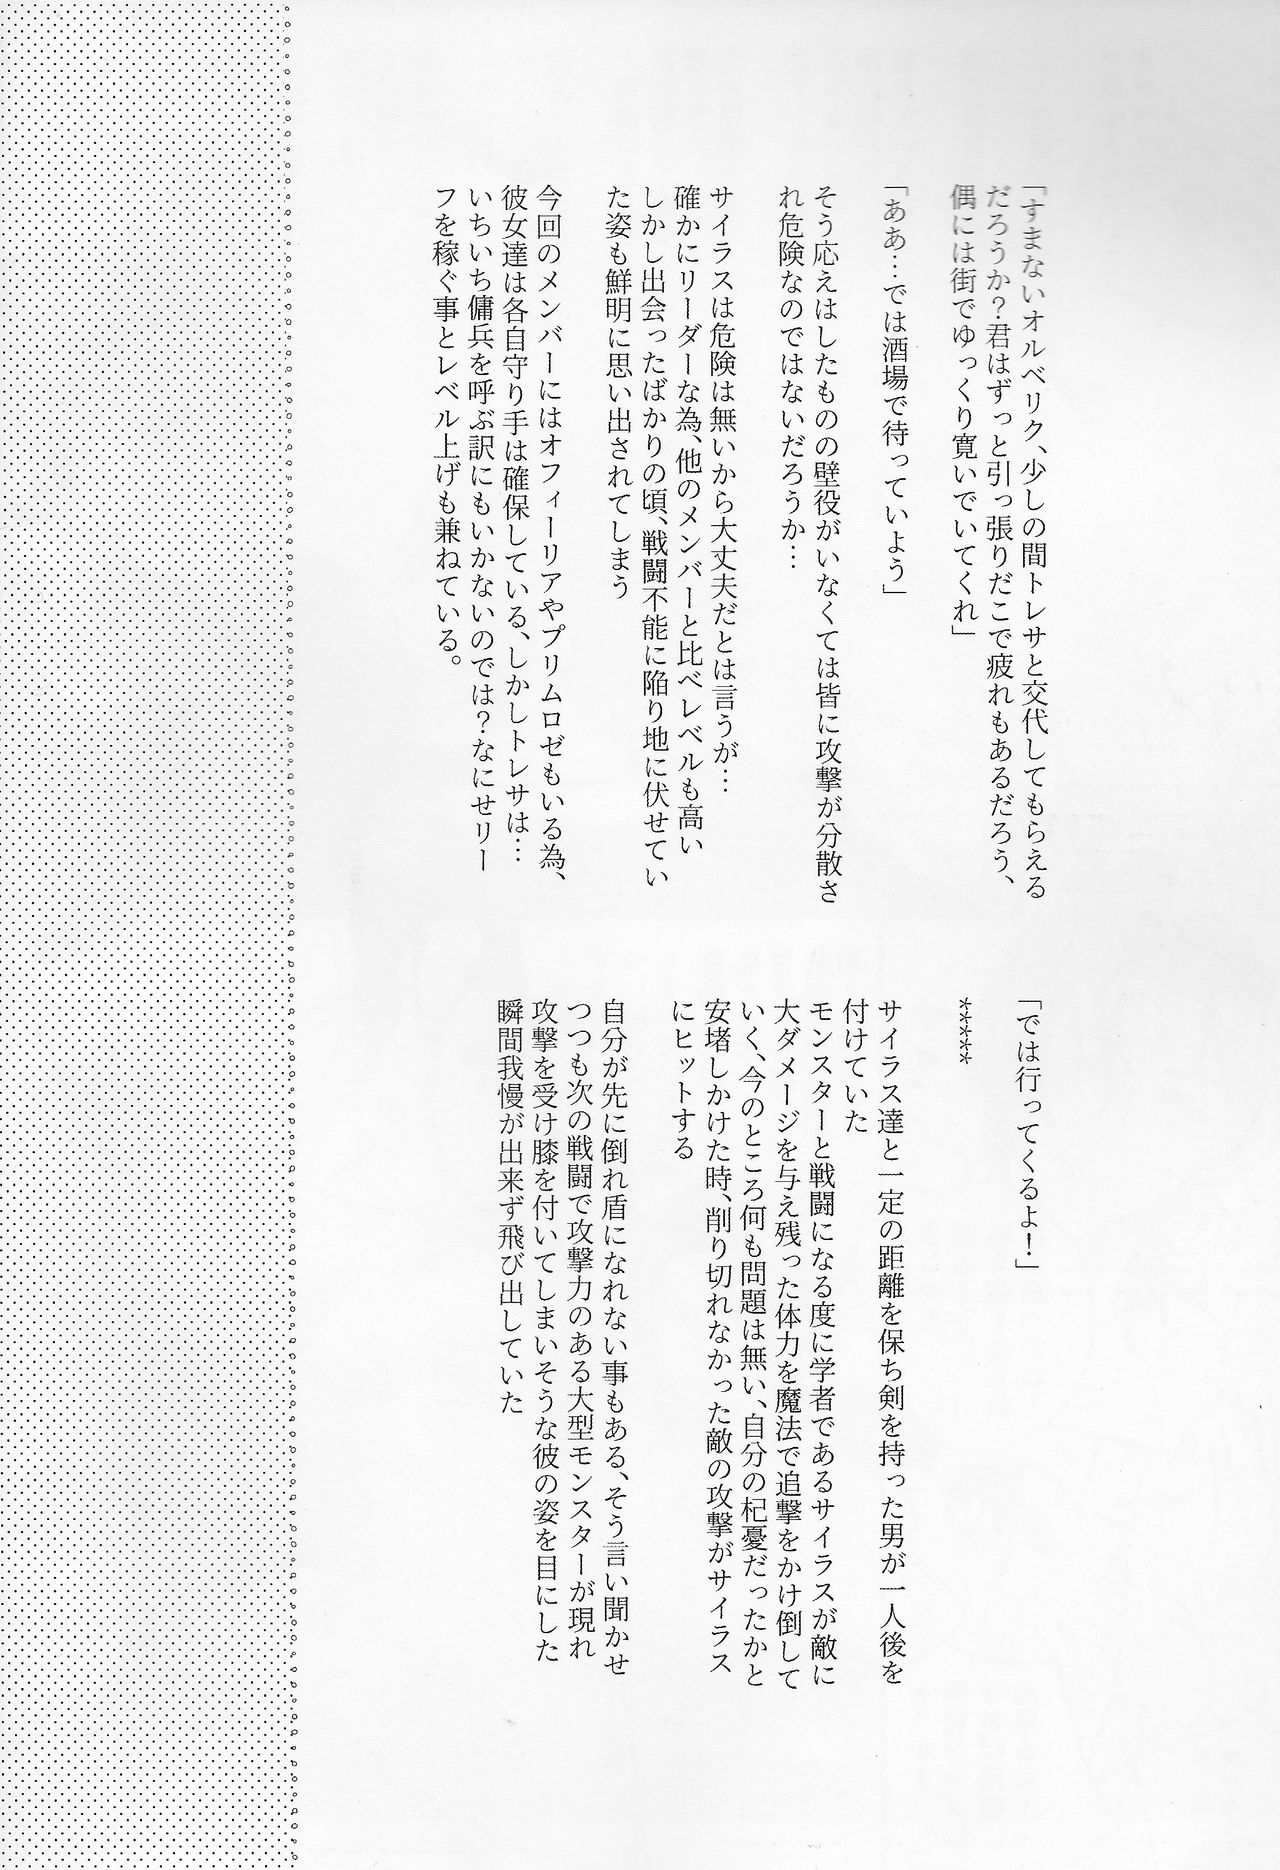 「すまないオルベリク、少しの間トレサと交代してもらえる
だろうか？君はずっと引っ張りだこで疲れもあるだろう、
偶には街でゆっくり寛いでいてくれ」
「ああ…では酒場で待っていよう」
そう応えはしたものの壁役がいなくては皆に攻撃が分散さ
れ危険なのではないだろうか…
サイラスは危険は無いから大丈夫だとは言うが…
確かにリーダーな為、他のメンバーと比べレベルも高い
しかし出会ったばかりの頃、戦闘不能に陥り地に伏せてい
た姿も鮮明に思い出されてしまう
今回のメンバーにはオフィーリアやプリムロゼもいる為、
彼女達は各自守り手は確保している、しかしトレサは…
いちいち傭兵を呼ぶ訳にもいかないのでは？なにせリー
フを稼ぐ事とレベル上げも兼ねている。
「では行ってくるよ！」
*****
サイラス達と一定の距離を保ち剣を持った男が一人後を
付けていた
モンスターと戦闘になる度に学者であるサイラスが敵に
大ダメージを与え残った体力を魔法で追撃をかけ倒して
いく、今のところ何も問題は無い、自分の杞憂だったかと
安堵しかけた時、削り切れなかった敵の攻撃がサイラス
にヒットする
自分が先に倒れ盾になれない事もある、そう言い聞かせ
つつも次の戦闘で攻撃力のある大型モンスターが現れ
攻撃を受け膝を付いてしまいそうな彼の姿を目にした
瞬間我慢が出来ず飛び出していた